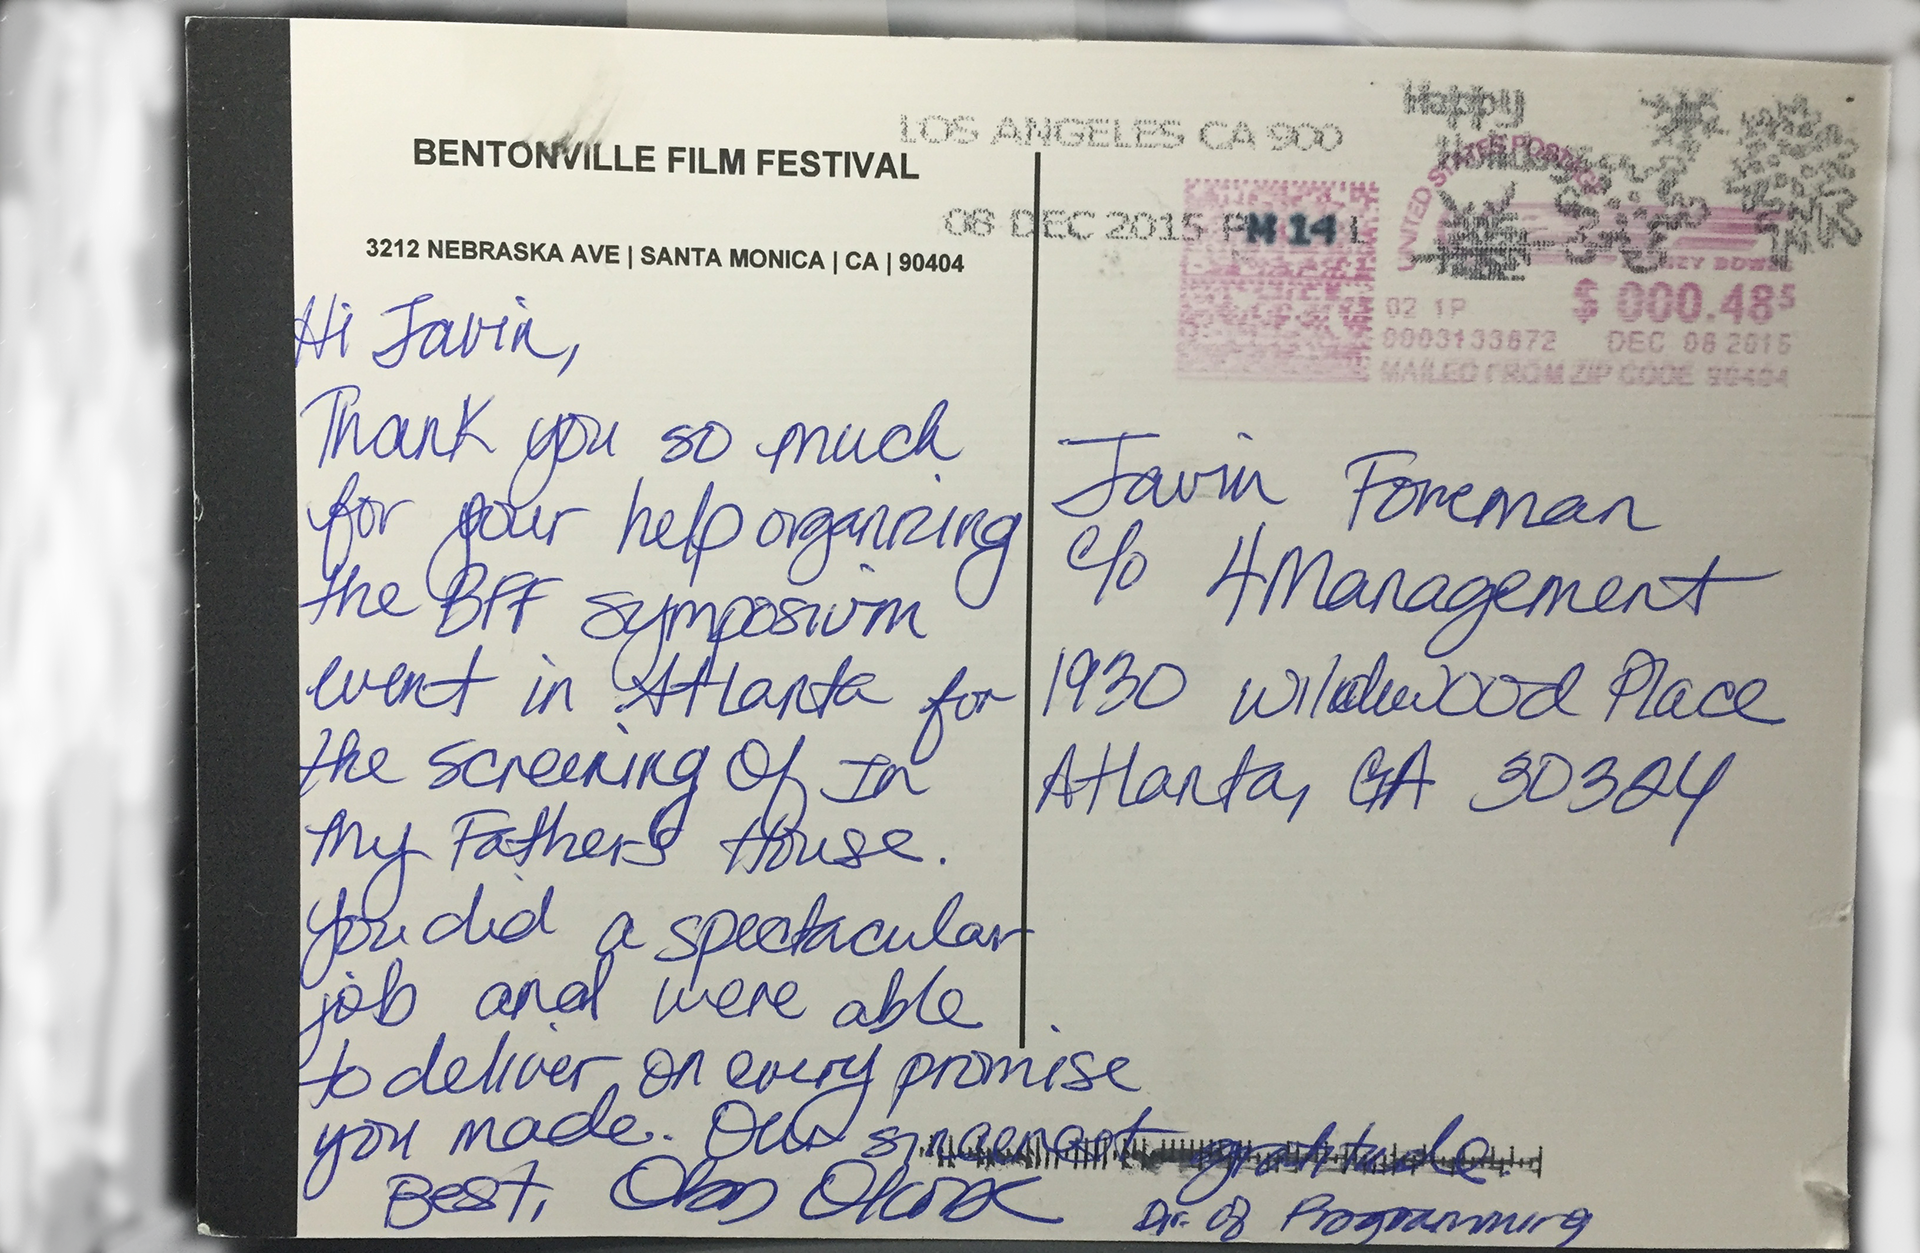 BENTONVILLE FILM FESTIVAL
3212 NEBRASKA AVE | SANTA MONICA | CA | 90404
Hi Javin,
Thank you so much
for your help organizing
the BFF symposium
event in Atlanta for
the screening of In
My Father's House.
You did a spectacular
job and were able
to deliver on every promise
you made. Our sincerest gratitude.
Best,
Dir. of Programming
LOS ANGELES CA 900
08 DEC 2015 PM 14 L
Happy
UNITED STATES POSTAGE
$ 000.48⁵
02 1P
0003133672 DEC 08 2015
MAILED FROM ZIP CODE 90404
Javin Foreman
c/o 4Management
1930 Wildwood Place
Atlanta, GA 30324